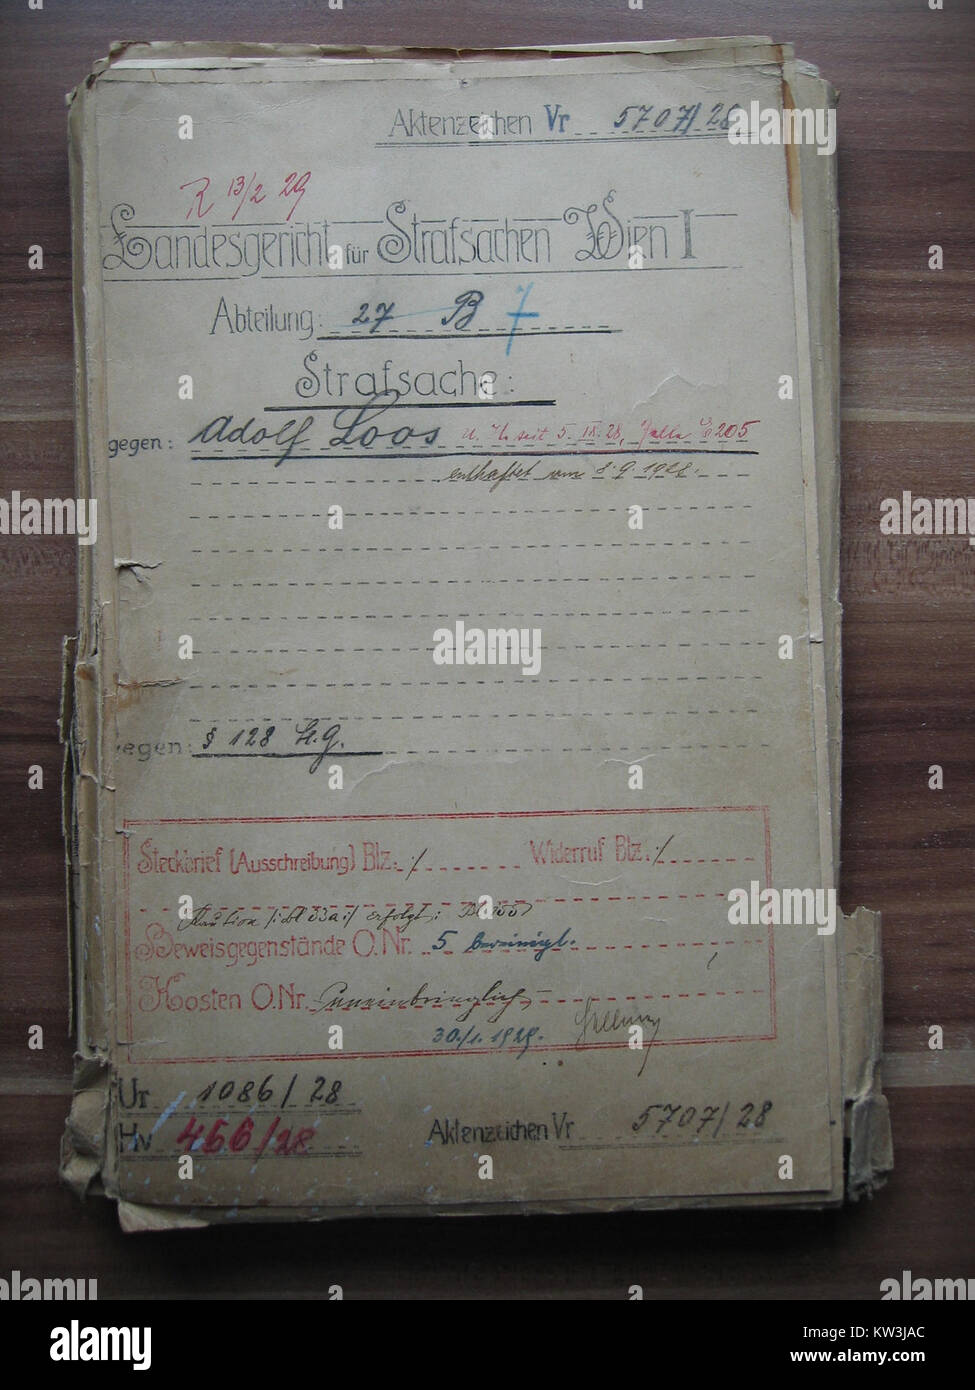 Aktenzeichen Vr 5707/28
R 13/2 29
Landesgericht für Strafsachen Wien I
Abteilung: 27 B 7
Strafsache:
gegen: Adolf Loos U. H. seit 5. IX. 28, Zelle E 205
enthaftet am 8. 9. 1928.
wegen: § 128 St. G.
Steckbrief (Ausschreibung) Blz.: /. Widerruf Blz.: /.
Kaution /: Bl 33a :/ erfolgt:
Beweisgegenstände O.Nr. 5 bereinigt.
Kosten O.Nr. uneinbringlich
30./1. 1929.
Ur 1086/28
Hv 466/28 Aktenzeichen Vr 5707/28
alamy
Image ID: KW3JAC
www.alamy.com